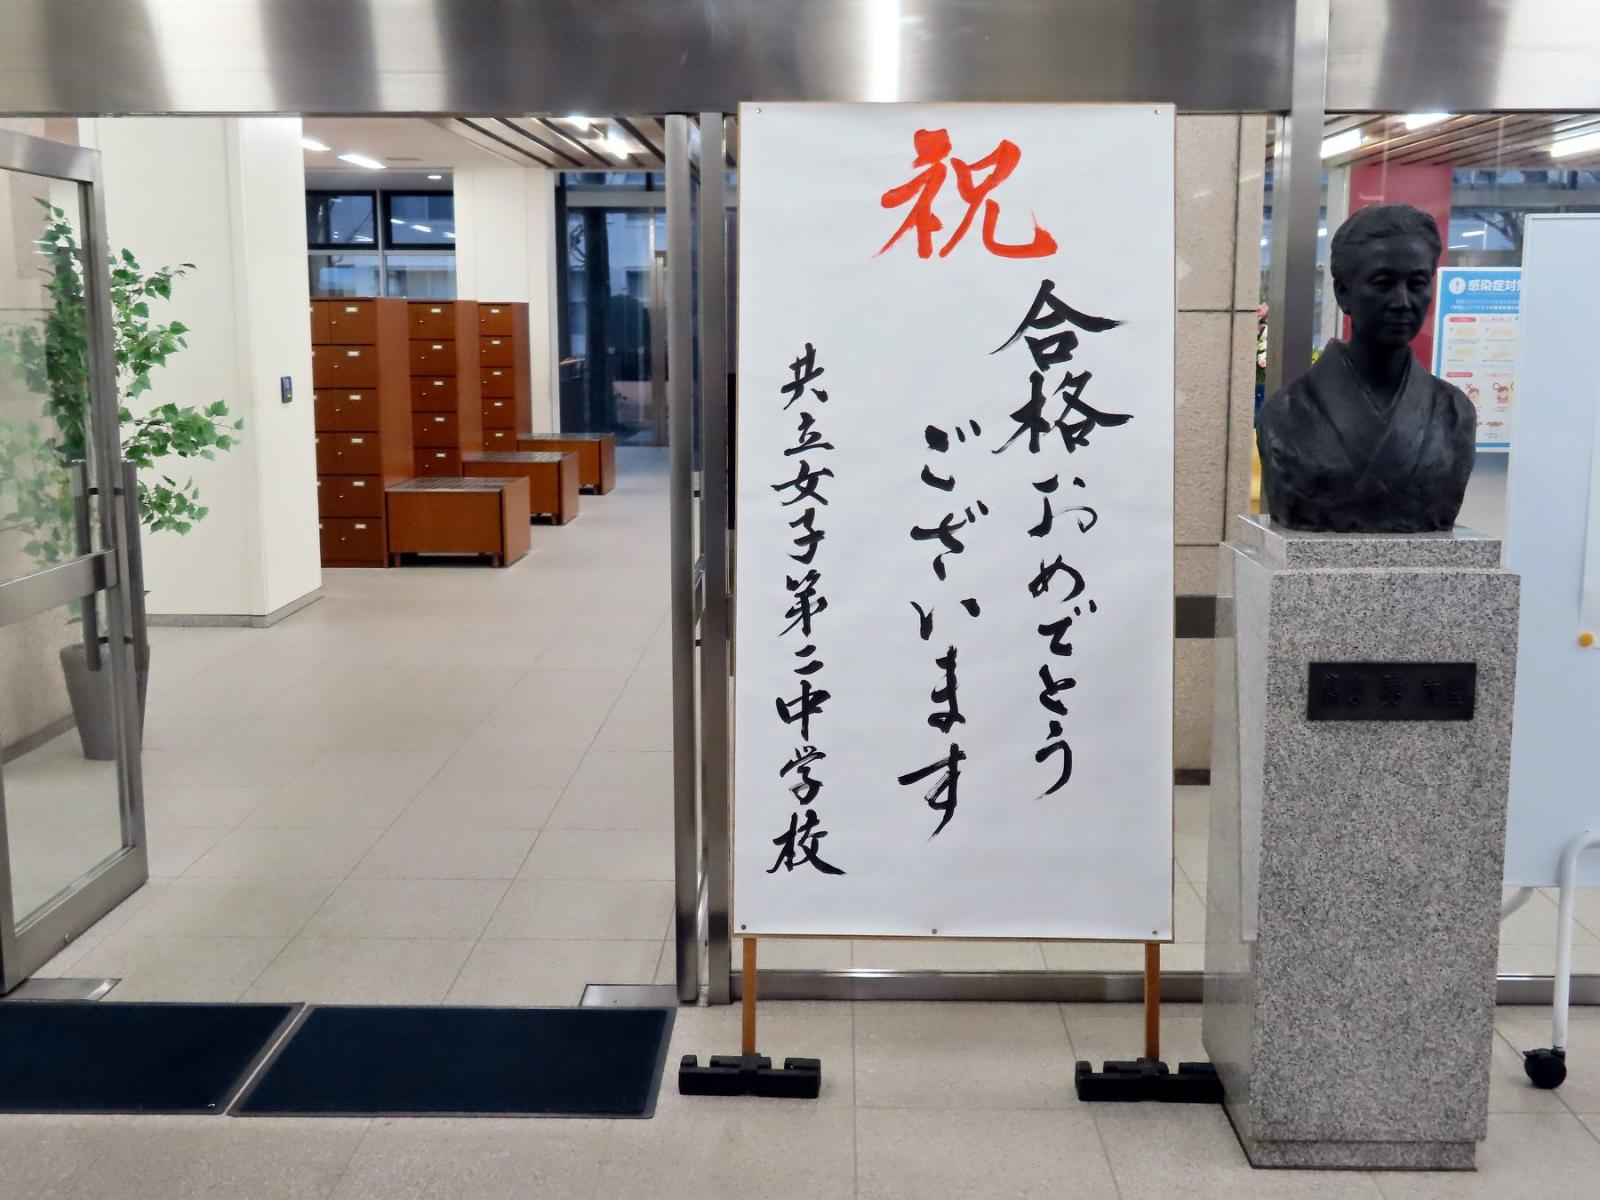 祝
合格おめでとう
ございます
共立女子第二中学校
感染症対